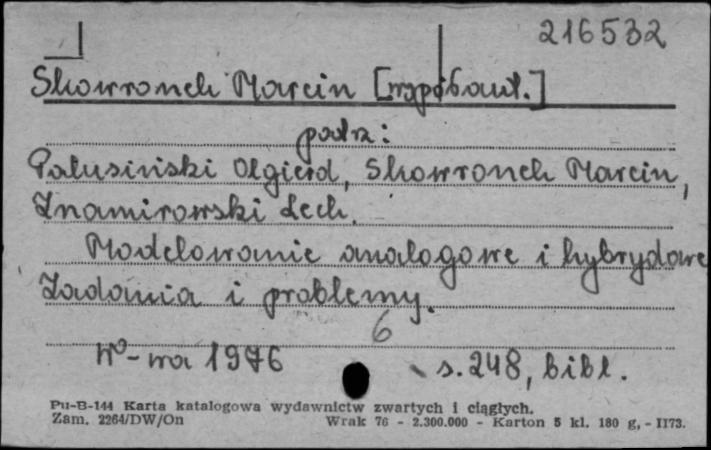 216532
Skowronek Marcin [współaut.]
patrz:
Palusiński Olgierd, Skowronek Marcin,
Znamirowski Lech.
Modelowanie analogowe i hybrydowe
Zadania i problemy.
6
W-wa 1976 s. 248, bibl.
Pu-B-144 Karta katalogowa wydawnictw zwartych i ciągłych.
Zam. 2264/DW/On Wrak 76 - 2.300.000 - Karton 5 kl. 180 g, - II73.